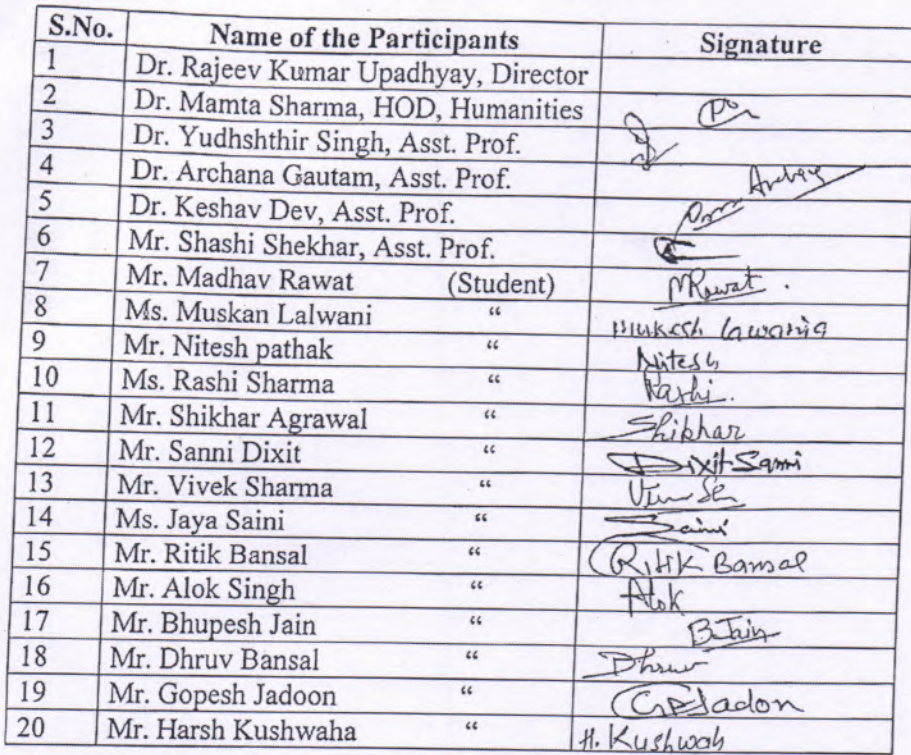 S.No. Name of the Participants Signature
1 Dr. Rajeev Kumar Upadhyay, Director
2 Dr. Mamta Sharma, HOD, Humanities
3 Dr. Yudhshthir Singh, Asst. Prof.
4 Dr. Archana Gautam, Asst. Prof. Archana
5 Dr. Keshav Dev, Asst. Prof.
6 Mr. Shashi Shekhar, Asst. Prof.
7 Mr. Madhav Rawat (Student) MRawat.
8 Ms. Muskan Lalwani “ mukesh lawania
9 Mr. Nitesh pathak “ Nitesh
10 Ms. Rashi Sharma “ Rashi.
11 Mr. Shikhar Agrawal “ Shikhar
12 Mr. Sanni Dixit “ Dixit Sanni
13 Mr. Vivek Sharma “
14 Ms. Jaya Saini “ Saini
15 Mr. Ritik Bansal “ Ritik Bansal
16 Mr. Alok Singh “ Alok
17 Mr. Bhupesh Jain “ B.Jain
18 Mr. Dhruv Bansal “ Dhruv
19 Mr. Gopesh Jadoon “ GPJadon
20 Mr. Harsh Kushwaha “ H. Kushwah